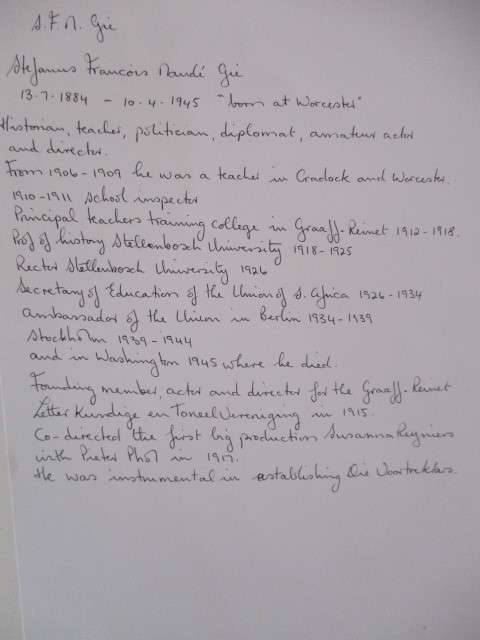 S.F.N. Gie
Stefanus Francois Naudé Gie
13.7.1884 - 10.4.1945 "born at Worcester"
Historian, teacher, politician, diplomat, amateur actor
and director.
From 1906-1909 he was a teacher in Cradock and Worcester.
1910-1911 School inspector
Principal teachers training college in Graaff-Reinet 1912-1918.
Prof of history Stellenbosch University 1918-1925
Rector Stellenbosch University 1926
Secretary of Education of the Union of S. Africa 1926-1934
ambassador of the Union in Berlin 1934-1939
Stockholm 1939-1944
and in Washington 1945 where he died.
Founding member, actor and director for the Graaff-Reinet
Letterkundige en Toneel Vereniging in 1915.
Co-directed the first big production Susanna Reyniers
with Pieter in 1917.
He was instrumental in establishing Die Voortrekkers.